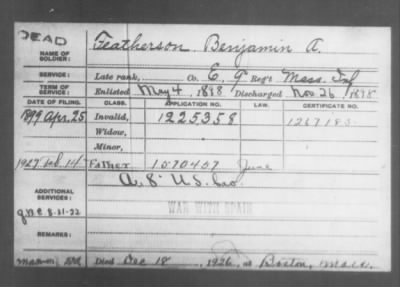 DEAD
NAME OF SOLDIER: Featherson Benjamin A.
SERVICE: Late rank, Co. E, 9" Reg't Mass. Inf
TERM OF SERVICE: Enlisted May 4, 1898 Discharged Nov. 26, 1898
DATE OF FILING. CLASS. APPLICATION NO. LAW. CERTIFICATE NO.
1899 Apr. 25 Invalid, 1225358
Widow,
Minor,
1927 14 Father 1570457 June
ADDITIONAL SERVICES: A, 8" U.S.
8-31-22 WAR WITH SPAIN
REMARKS:
Died Dec 18, 1926, at Boston, Mass.